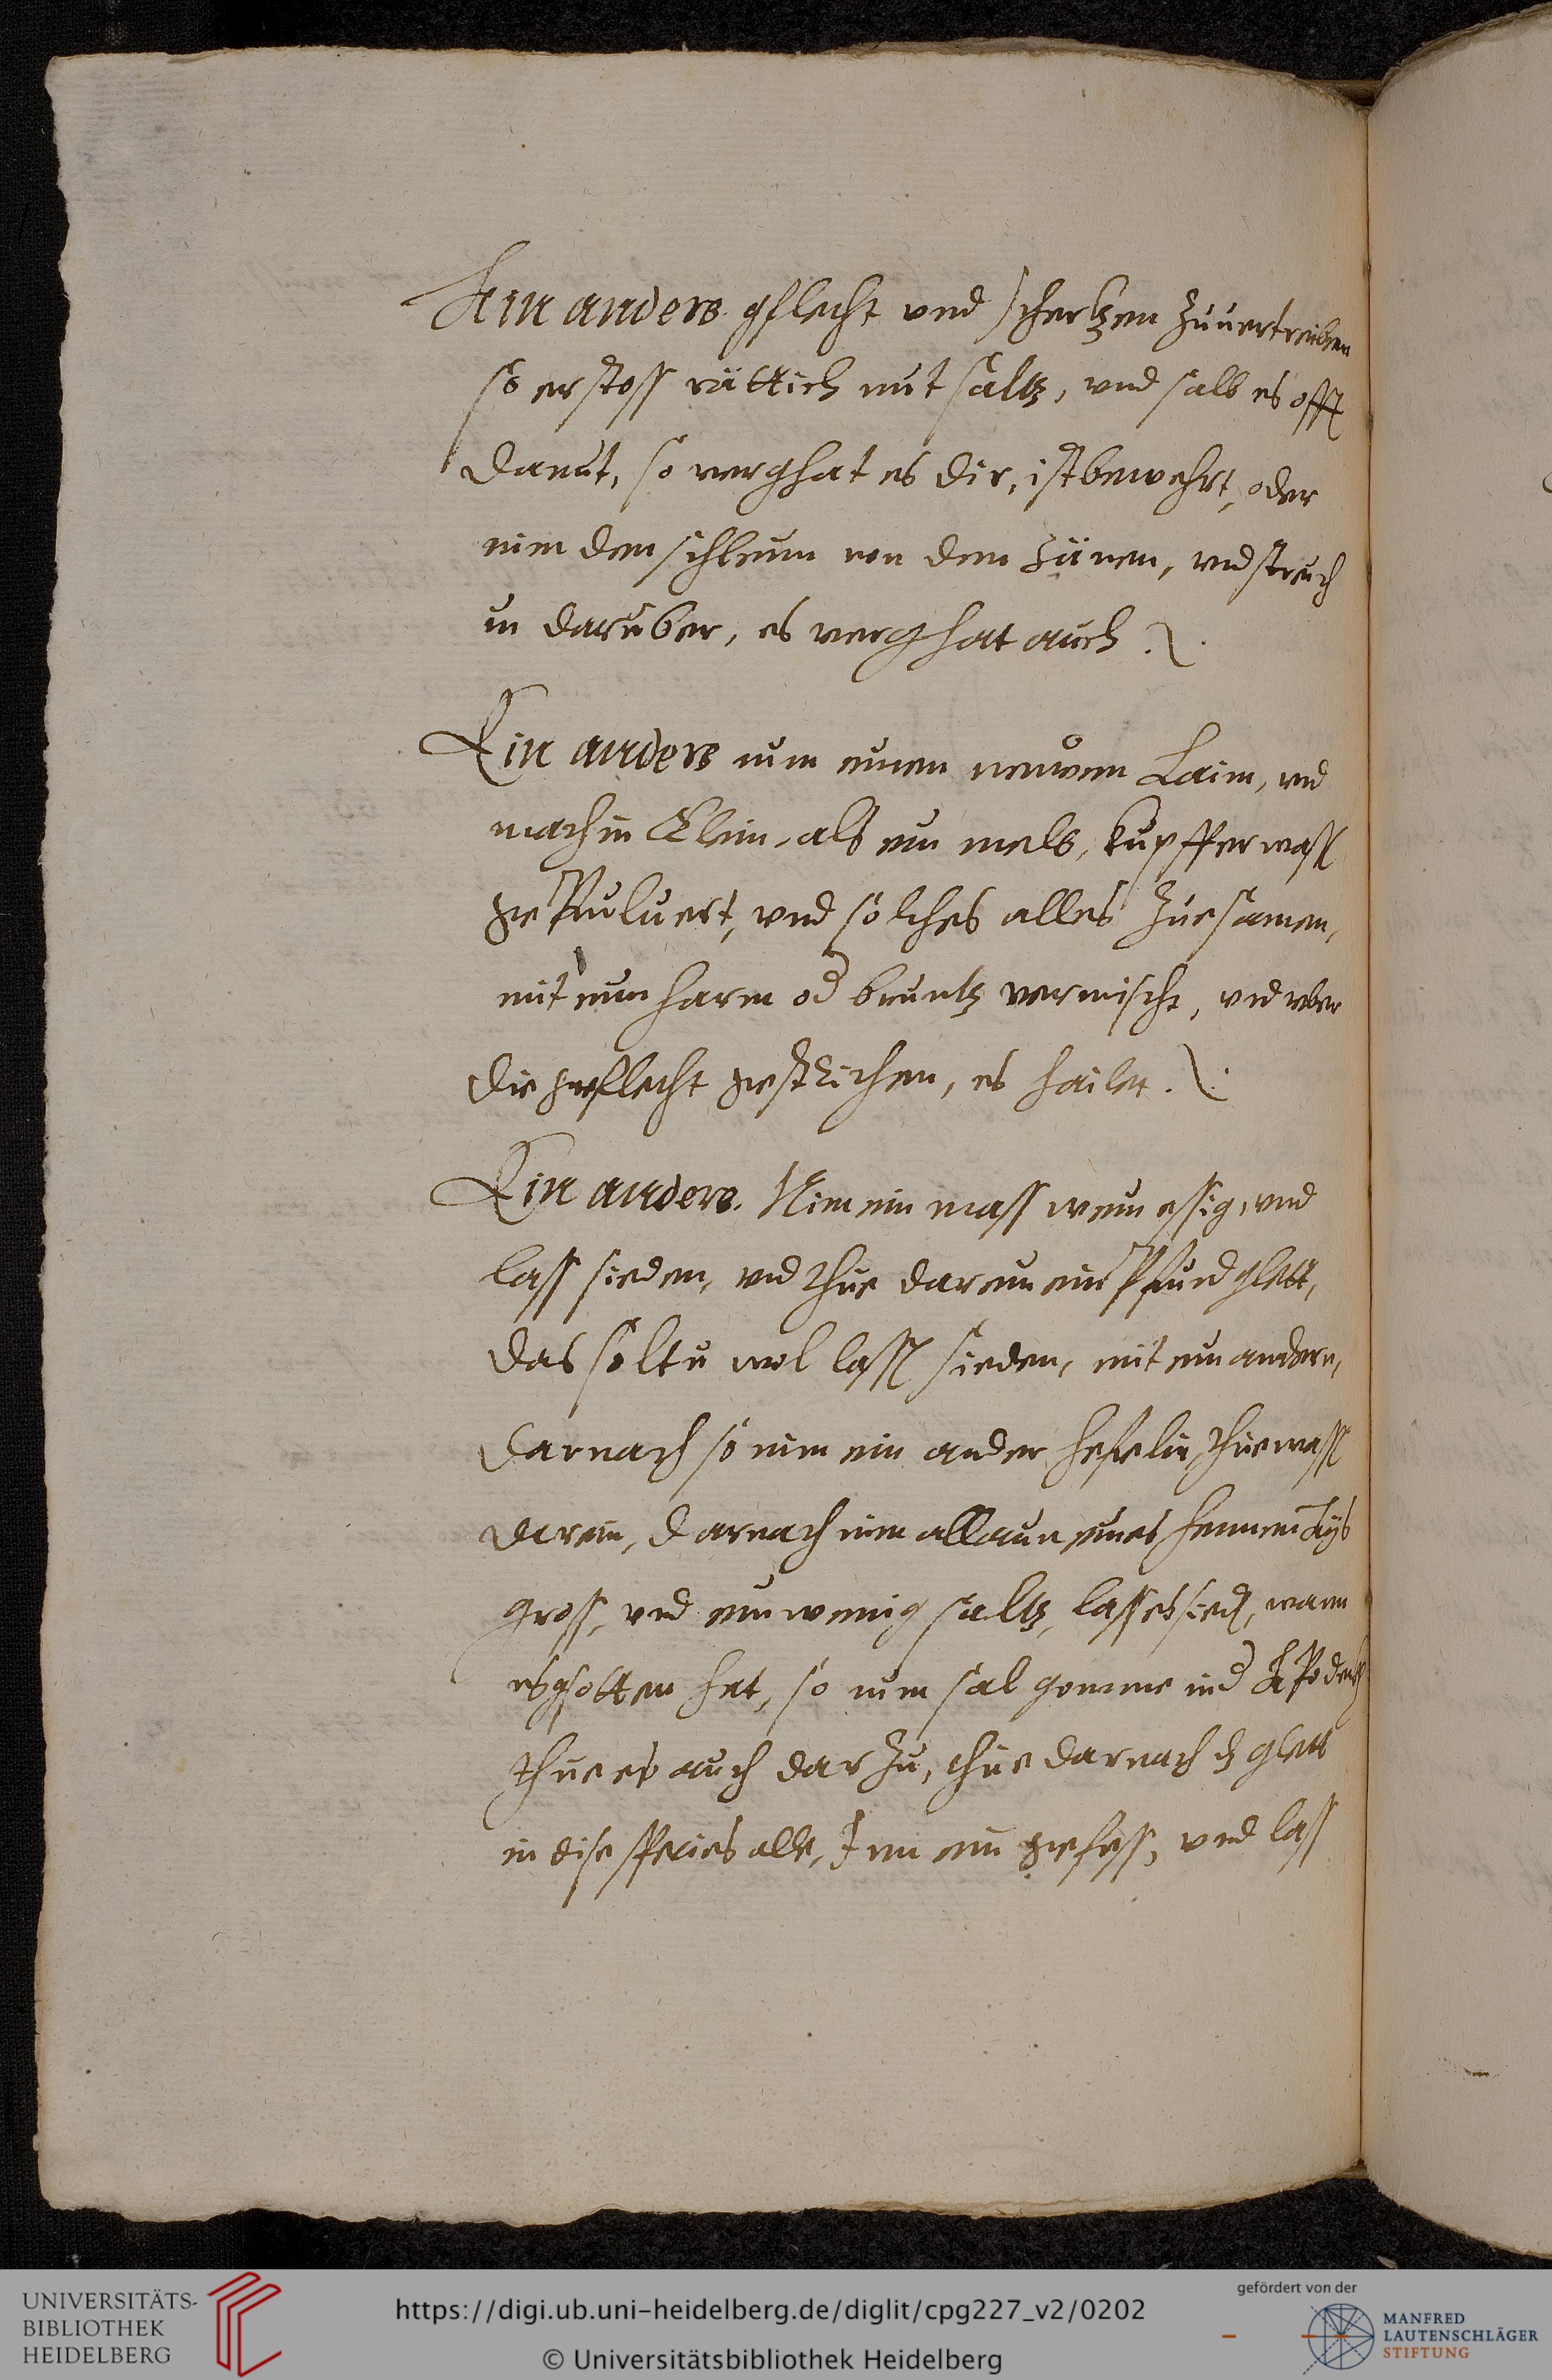 Ein anders gflecht vnd schertzen zuuertreiben
so erstoss rättich mit saltz, vnd salb es offt
damit, so verghat es dir, ist bewehrt, oder
nim den schleim von den zänen, vnd streich
in daruber, es verghat auch
Ein anders nim einen neuwen Laim, vnd
mach in klein, als ein melb, kupffer wass
gepuluert, vnd solches alles zuesamen,
mit eim harm od bruntz vermischt, vnd vber
die geflecht gestrichen, es hailet.
Ein anders. Nim ein mass wein essig, vnd
lass sieden, vnd thue darein ein Pfund glett,
das soltu wol lassen sieden, mit ein andern,
darnach so nim ein ander hefelin, thue wass
darein, darnach nim allaun eines hennen
gross, vnd ein wenig saltz, lass es sieden, wann
es gsotten hat, so nim sal gemme
thue es auch dar zu, thue darnach dz glett
in dise species alle, in ein gefess, vnd lass
UNIVERSITÄTS-
BIBLIOTHEK
HEIDELBERG
https://digi.ub.uni-heidelberg.de/diglit/cpg227_v2/0202
© Universitätsbibliothek Heidelberg
gefördert von der
MANFRED
LAUTENSCHLÄGER
STIFTUNG